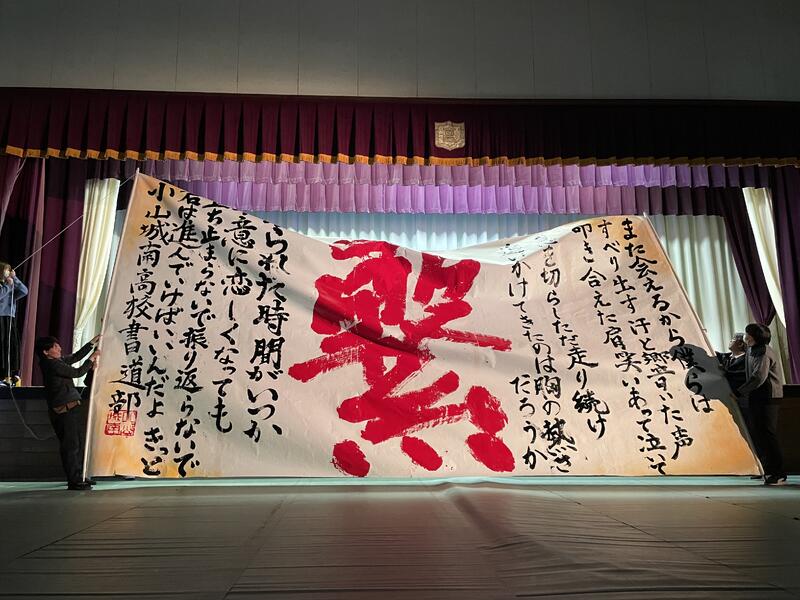 また会えるから僕らは
すべり出す汗と響いた声
叩き合えた肩 笑いあって泣いて
を切らしただ走り続け
いかけてきたのは胸の熱さ
だろうか
繋
られた時間がいつか
意に恋しくなっても
ち止まらないで振り返らないで
君は進んでいけばいいんだよ きっと
小山城南高校書道部